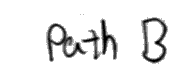 Path B